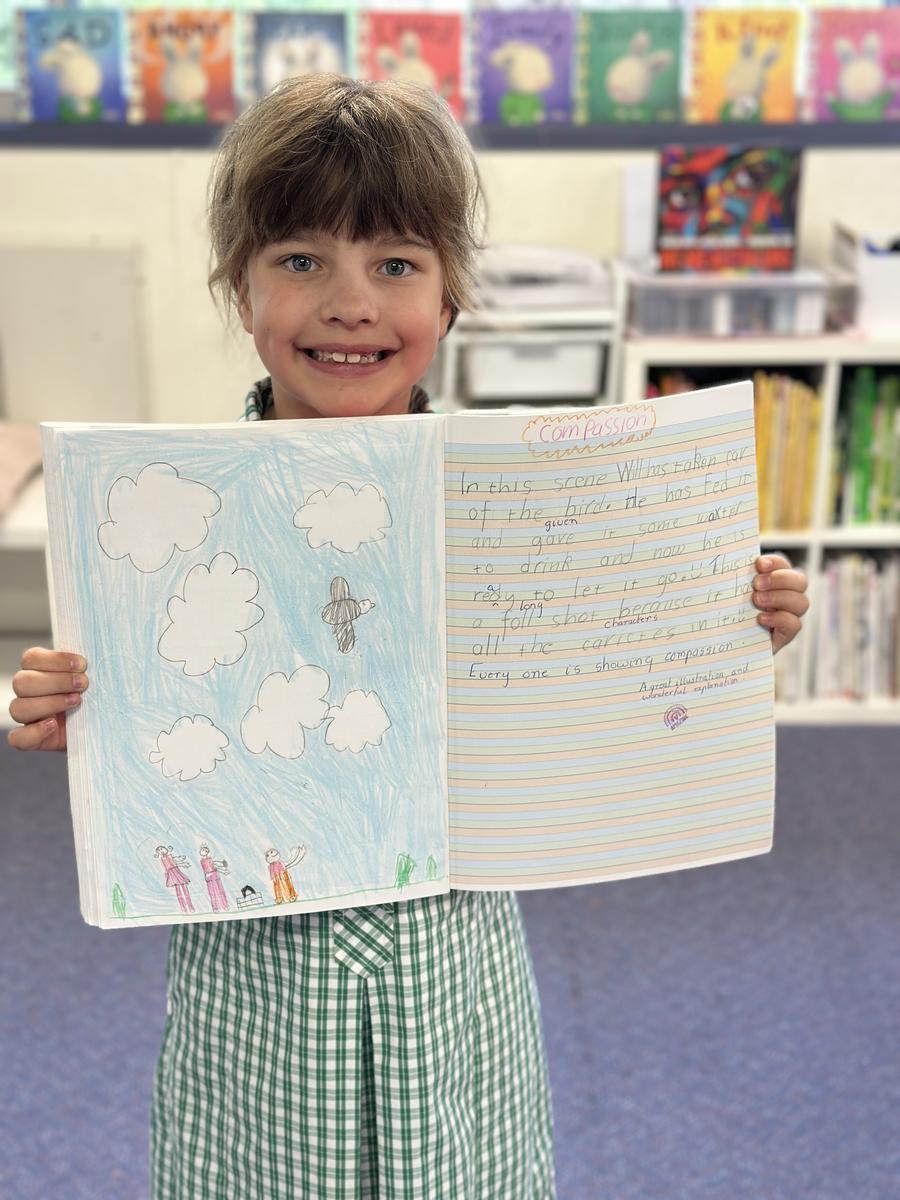 SAD
KIND
Compassion
In this scene Will has taken car
of the bird. He has fed it
given
and gave it some water
to drink and now he is
ready to let it go. This
long
a foll shot because it ha
characters
all the carictes in it.
Every one is showing compassion
A great illustration and
wonderful explanation!